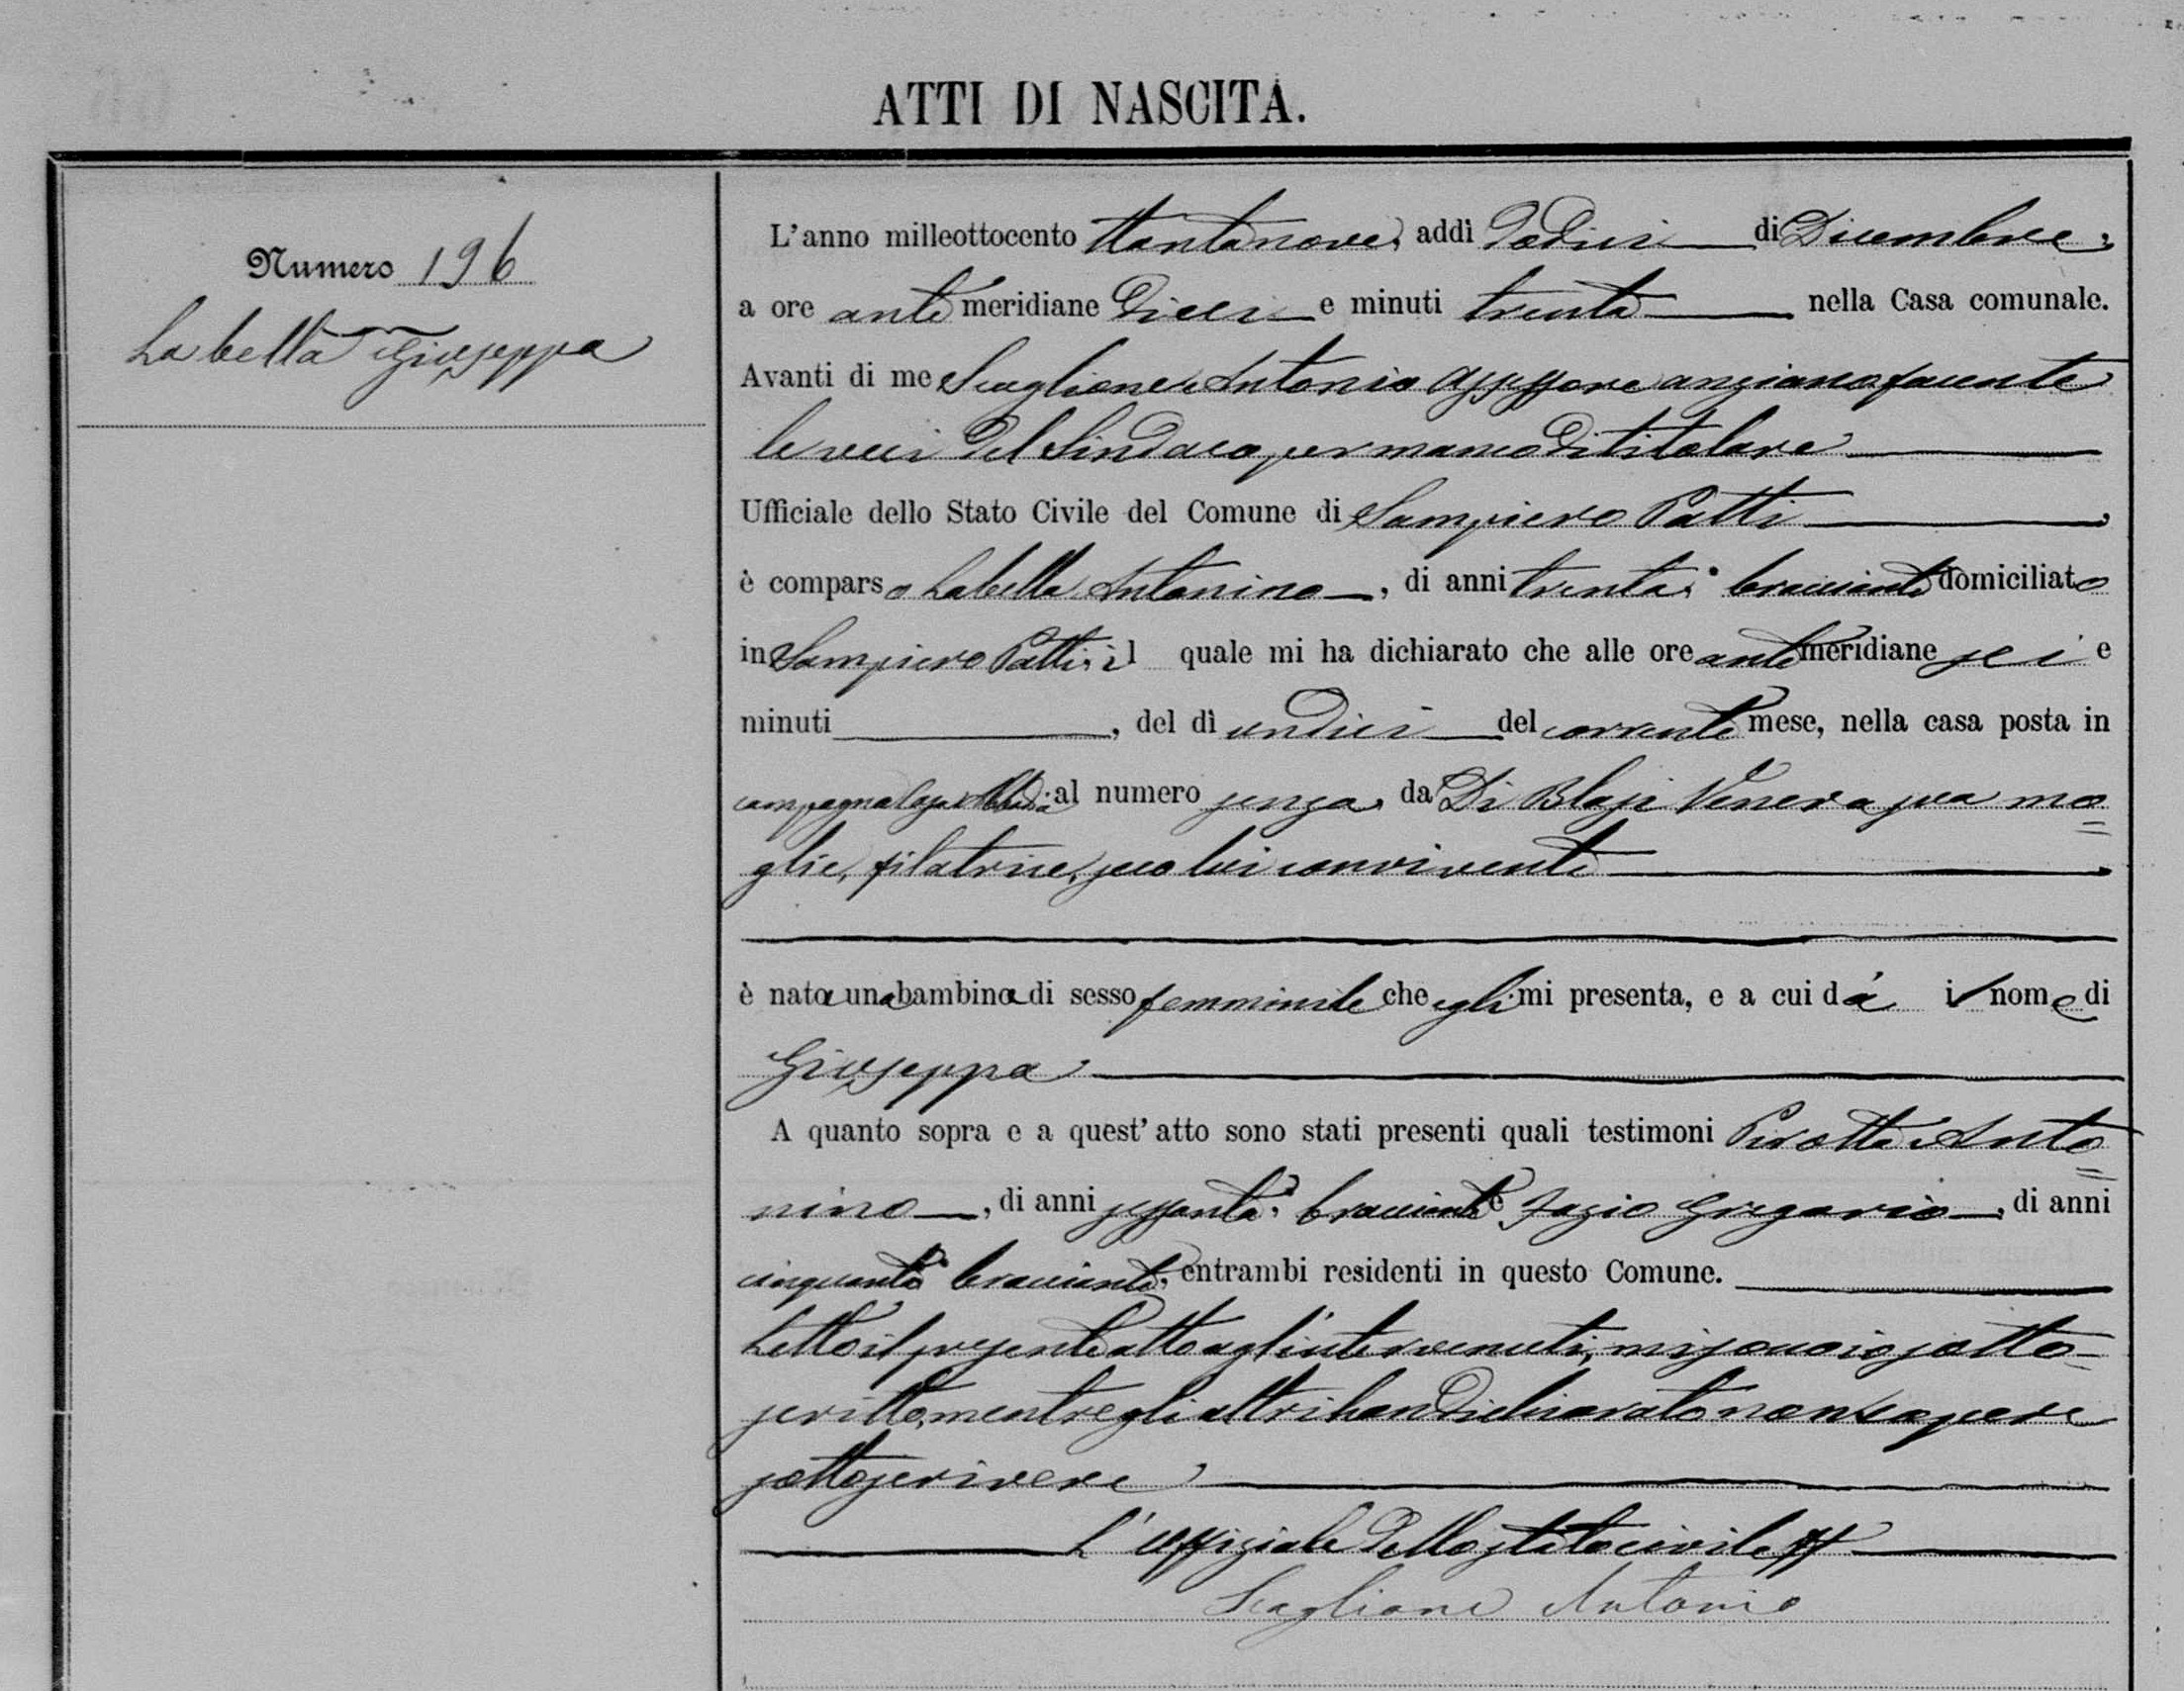 ATTI DI NASCITA.
Numero 196
Labella Giuseppa
L'anno milleottocento ttantanove, addì Dodici di Dicembre,
a ore ante meridiane Dieci e minuti trenta nella Casa comunale.
Avanti di me Scaglione Antonio Assessore anziano facente
le veci Del Sindaco per manco Di titolare
Ufficiale dello Stato Civile del Comune di Sampiero Patti
è comparso Labella Antonino, di anni trenta, bracciante domiciliato
in Sampiero Patti, il quale mi ha dichiarato che alle ore ante meridiane sei e
minuti, del dì undici del corrente mese, nella casa posta in
campagna al numero senza, da Di Blasi Venera sua mo=
glie, filatrice, seco lui convivente
è nata una bambina di sesso femminile che egli mi presenta, e a cui dà il nome di
Giuseppa
A quanto sopra e a quest'atto sono stati presenti quali testimoni Pirotta Anto=
nino, di anni sessanta, bracciante e Fazio Gregorio, di anni
cinquanta bracciante, entrambi residenti in questo Comune.
Letto il presente atto agl'intervenuti, mi sono io sotto-
scritto, mentre gli altri han Dichiarato non sapere
sottoscrivere
L'uffiziale Dello stato civile ff
Scaglione Antonio